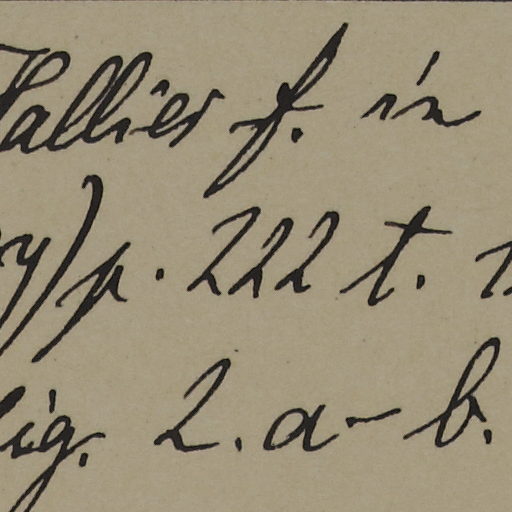 Hallier f. in
y) p. 222 t.
fig. 2. a-b.